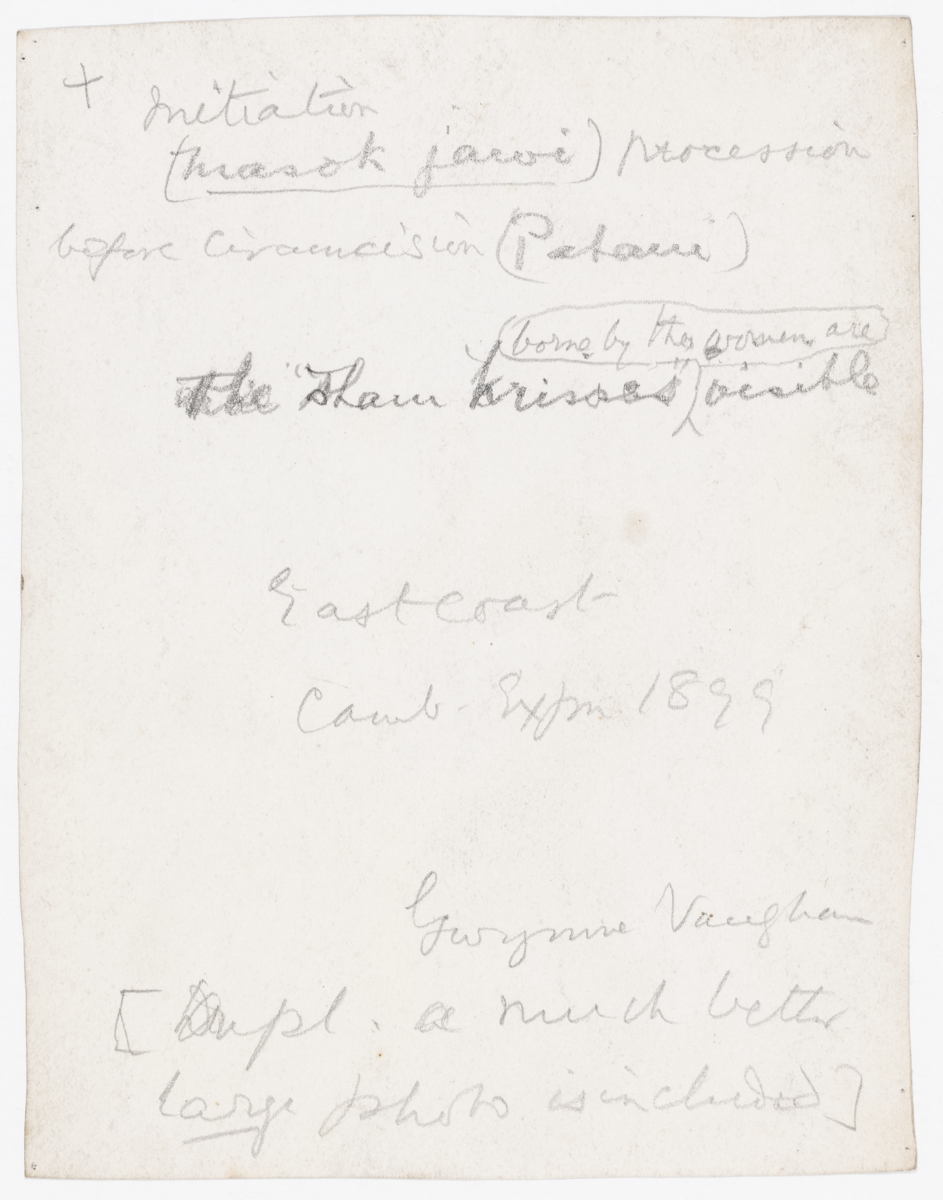 + Initiation
(masok jawi) procession
before circumcision (Patani)
(borne by the women are
the "Sham krisses") visible
East coast
Camb. Expn 1899
Gwynne Vaughan
[Dupl. a much better
large photo is included]